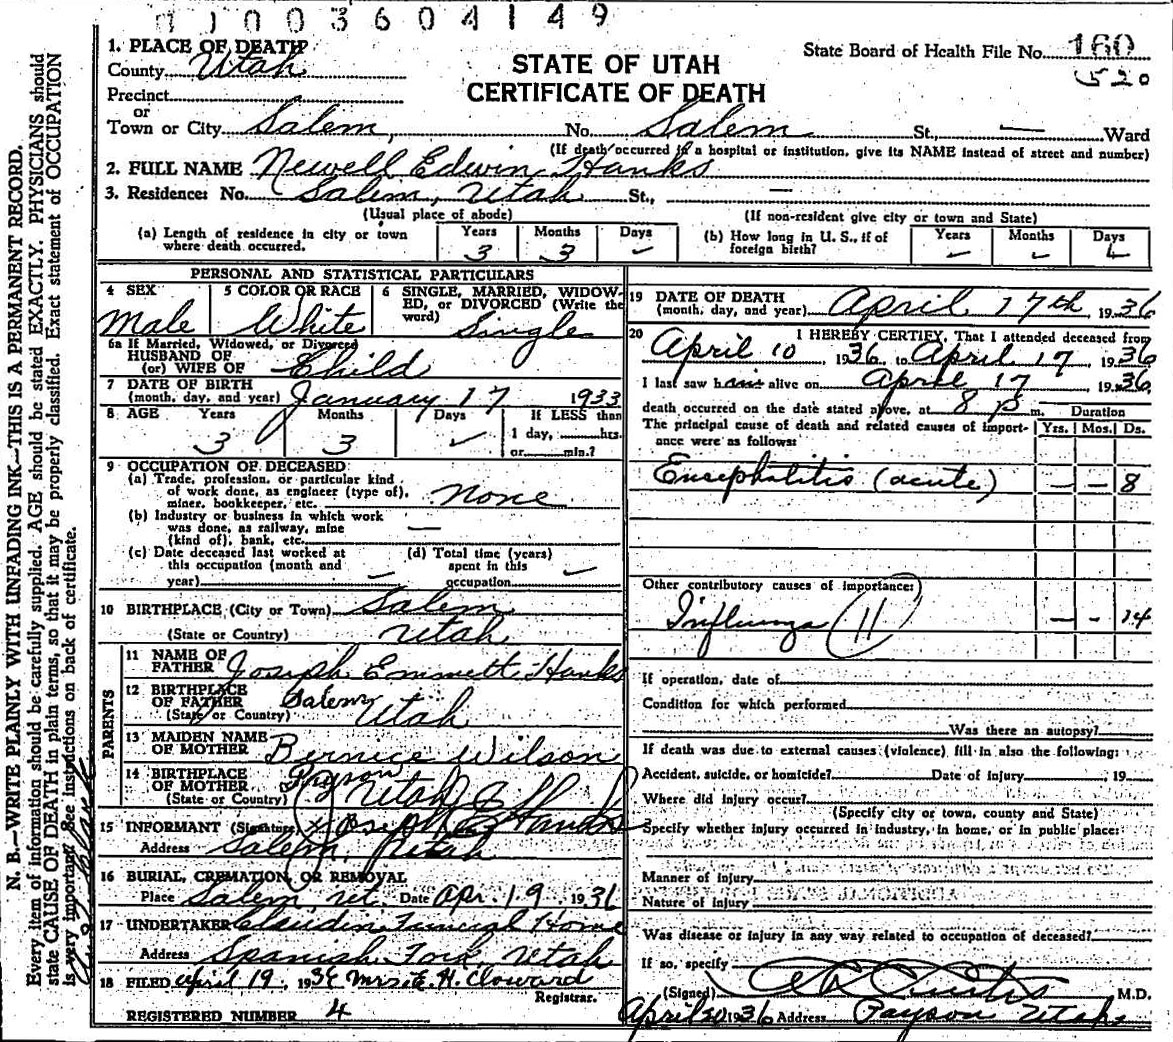 1003604149
1. PLACE OF DEATH
County Utah
STATE OF UTAH
CERTIFICATE OF DEATH
State Board of Health File No. 160
520
Precinct
or
Town or City Salem, No. Salem St., — Ward
(If death occurred in a hospital or institution, give its NAME instead of street and number)
2. FULL NAME Newell Edwin Hanks
3. Residence: No. Salem, Utah St., —
(Usual place of abode) (If non-resident give city or town and State)
(a) Length of residence in city or town where death occurred. Years 3 Months 3 Days –
(b) How long in U. S., if of foreign birth? Years – Months – Days
PERSONAL AND STATISTICAL PARTICULARS
4 SEX Male
5 COLOR OR RACE White
6 SINGLE, MARRIED, WIDOWED, or DIVORCED (Write the word) Single
6a If Married, Widowed, or Divorced
HUSBAND OF
(or) WIFE OF Child
7 DATE OF BIRTH
(month, day, and year) January 17 1933
8 AGE Years 3 Months 3 Days – If LESS than
1 day, hrs.
or min.?
9 OCCUPATION OF DECEASED
(a) Trade, profession, or particular kind
of work done, as engineer (type of),
miner, bookkeeper, etc. None
(b) Industry or business in which work
was done, as railway, mine
(kind of), bank, etc. —
(c) Date deceased last worked at
this occupation (month and
year) –
(d) Total time (years)
spent in this
occupation –
10 BIRTHPLACE (City or Town) Salem
(State or Country) Utah
PARENTS
11 NAME OF
FATHER Joseph Emmett Hanks
12 BIRTHPLACE
OF FATHER Salem
(State or Country) Utah
13 MAIDEN NAME
OF MOTHER Bernice Wilson
14 BIRTHPLACE
OF MOTHER Payson
(State or Country) Utah
15 INFORMANT (Signature) x Joseph E Hanks
Address Salem, Utah
16 BURIAL, CREMATION, OR REMOVAL
Place Salem, Ut. Date Apr. 19 1936
17 UNDERTAKER Claudin Funeral Home
Address Spanish Fork, Utah
18 FILED April 19, 1936 Mrs. E. H. Cloward
Registrar.
REGISTERED NUMBER 4
19 DATE OF DEATH
(month, day, and year) April 17th, 1936
20 I HEREBY CERTIFY, That I attended deceased from
April 10 1936 to April 17 1936
I last saw him alive on April 17 1936
death occurred on the date stated above, at 8 p m. Duration
The principal cause of death and related causes of importance were as follows: Yrs. Mos. Ds.
Encephalitis (acute) – – 8
Other contributory causes of importance:
Influenza (11) – – 14
If operation, date of
Condition for which performed
Was there an autopsy?
If death was due to external causes (violence) fill in also the following:
Accident, suicide, or homicide? Date of injury 19
Where did injury occur?
(Specify city or town, county and State)
Specify whether injury occurred in industry, in home, or in public place:
Manner of injury
Nature of injury
Was disease or injury in any way related to occupation of deceased?
If so, specify
(Signed) Curtis M.D.
April 20 1936 Address Payson Utah
N. B.—WRITE PLAINLY WITH UNFADING INK—THIS IS A PERMANENT RECORD.
Every item of information should be carefully supplied. AGE should be stated EXACTLY. PHYSICIANS should
state CAUSE OF DEATH in plain terms, so that it may be properly classified. Exact statement of OCCUPATION
is very important. See instructions on back of certificate.